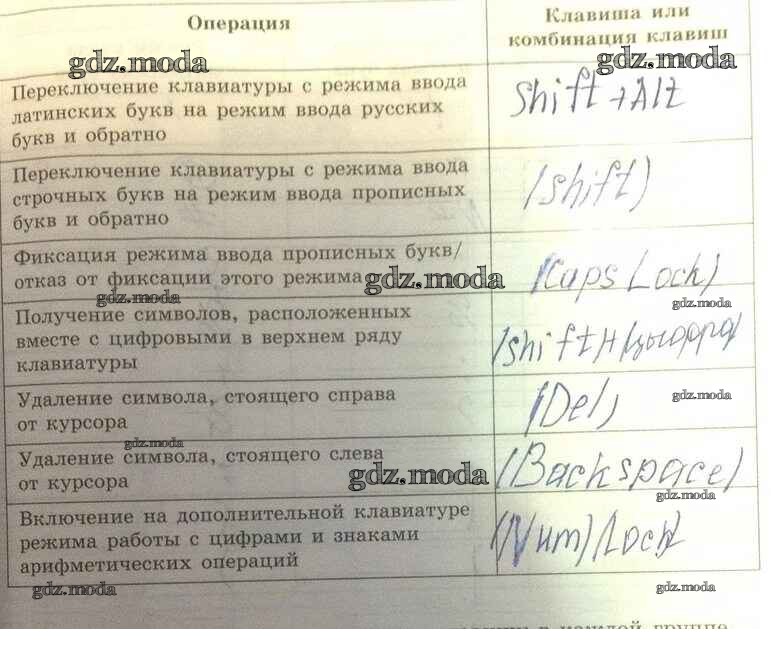 Операция
Клавиша или
комбинация клавиш
gdz.moda
gdz.moda
Переключение клавиатуры с режима ввода
латинских букв на режим ввода русских
букв и обратно
Shift +Alt
Переключение клавиатуры с режима ввода
строчных букв на режим ввода прописных
букв и обратно
(shift)
Фиксация режима ввода прописных букв/
отказ от фиксации этого режима
gdz.moda
(Caps Lock)
gdz.moda
gdz.moda
Получение символов, расположенных
вместе с цифровыми в верхнем ряду
клавиатуры
(shift)+(цыфра)
Удаление символа, стоящего справа
от курсора
(Del)
gdz.moda
gdz.moda
Удаление символа, стоящего слева
от курсора
gdz.moda
(Backspace)
gdz.moda
Включение на дополнительной клавиатуре
режима работы с цифрами и знаками
арифметических операций
(Num)(Lock)
gdz.moda
gdz.moda
в каждой группе